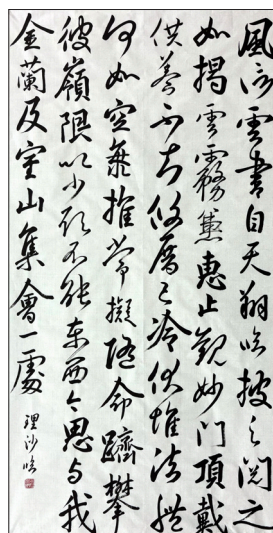 風信雲書自天翔臨披之閱之
如揭雲霧兼惠止觀妙門頂戴
供養不知攸厝已冷伏惟法體
何如空海推常擬隨命躋攀
彼嶺限以少願不能東西今思与我
金蘭及室山集會一處
理沙臨